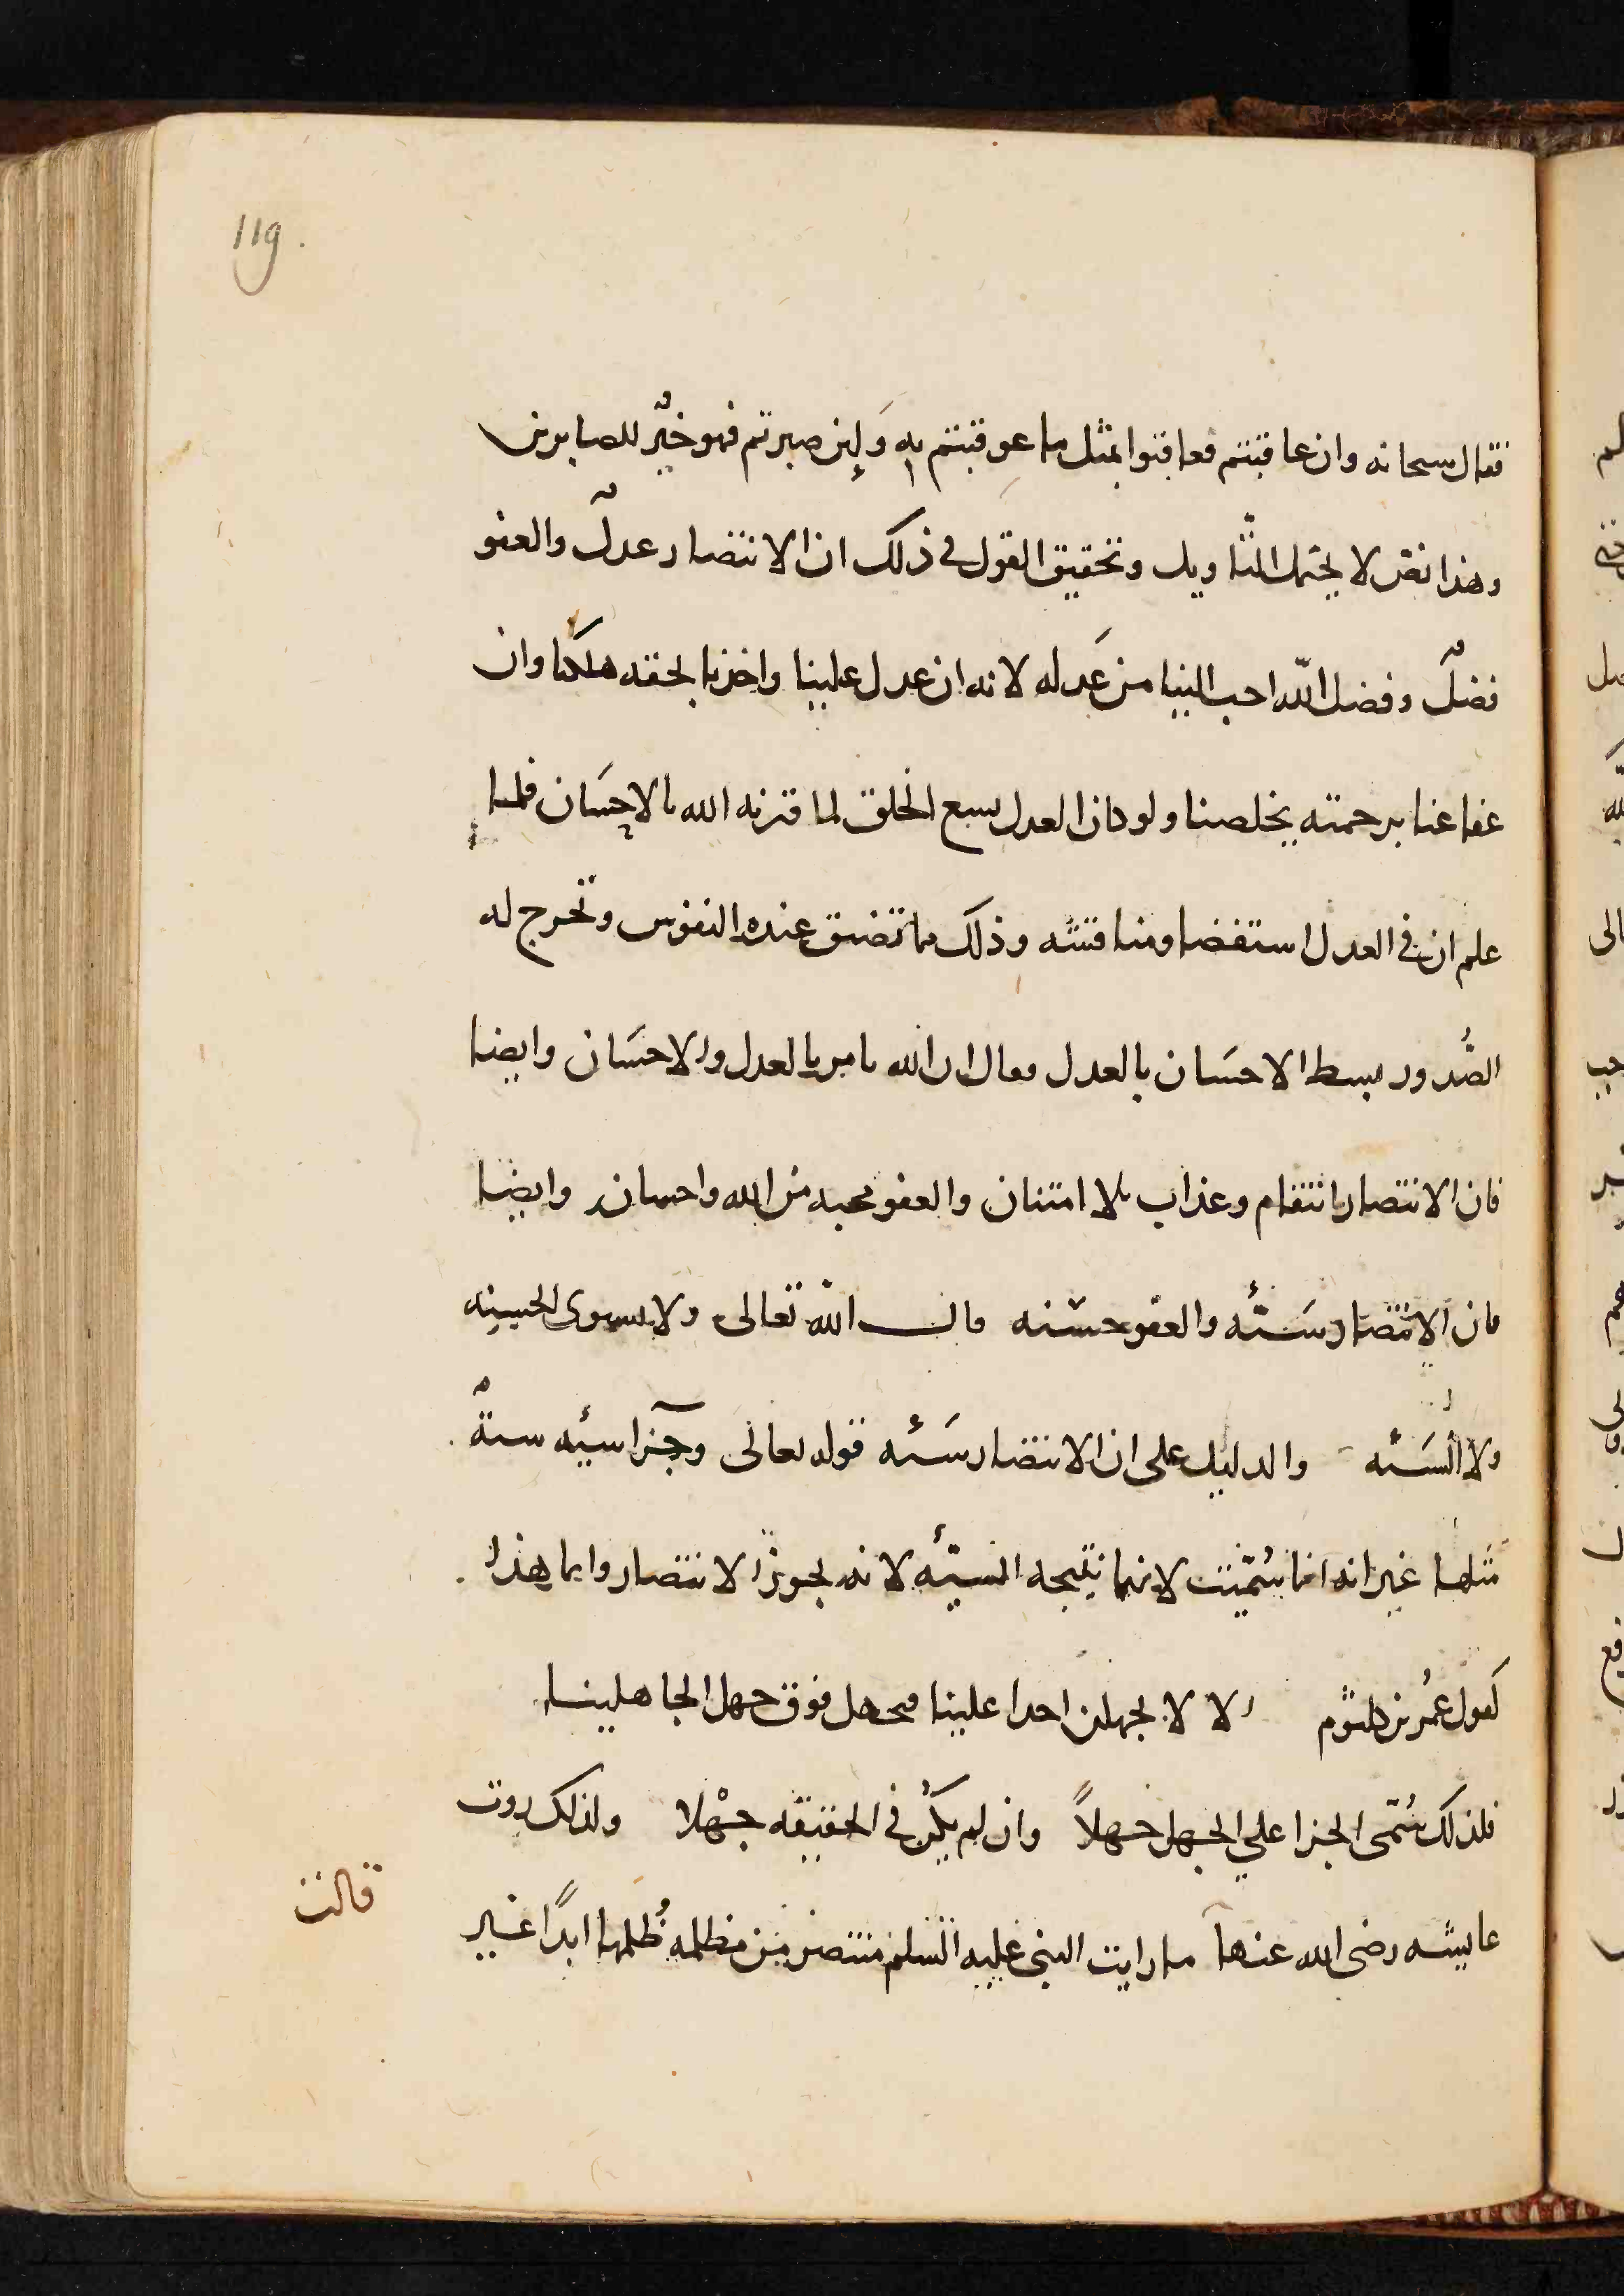 119.
فقال سبحانه وان عاقبتم فعاقبوا بمثل ما عوقبتم به وَلئِن صبرتم فهو خيرٌ للصابرين
وهذا نص لا يحتمل التاويل وتحقيق القول في ذلك ان الانتصار عدلٌ والعفو
فضلٌ وفضل الله احب الينا من عَدله لانه ان عدل علينا واخذنا بحقه هلكنا وان
عفا عنا برحمته يخلصنا ولو كان العدل يسع الخلق لما قرنه الله بالاحسَان فلما
علم ان في العدل استقضا ومناقشه وذلك مما تضيق عنده النفوس وتحرج له
الصُّدور بسط الاحسَان بالعدل فقال ان الله يامر بالعدل والاحسَان وايضا
فان الانتصار انتقام وعذاب بلا امتنان والعفو محبه من الله واحسان وايضا
فان الانتصار سَيئه والعفو حسنه قال الله تعالى ولا تستوى الحسنه
ولا السَيئه والدليل على ان الانتصار سَيئه قوله تعالى وجزآ سيئه سيئةٌ
مثلها غير انه انما سُمّيت لانها نتيجه السيّئه لانه يجوز الانتصار وانما هذا
كقول عمُر بن كلثوم الا لا يجهلن احدا علينا فنجهل فوق جهل الجاهلينا
فلذلك سُمّى الجزا علي الجهل جهلاً وان لم يكُن في الحقيقه جهْلا ولذلك روت
عايشه رضى الله عنها ما رايت النبى عليه السّلم منتصر من مظلمه ظُلمها ابدًا غير
قالت